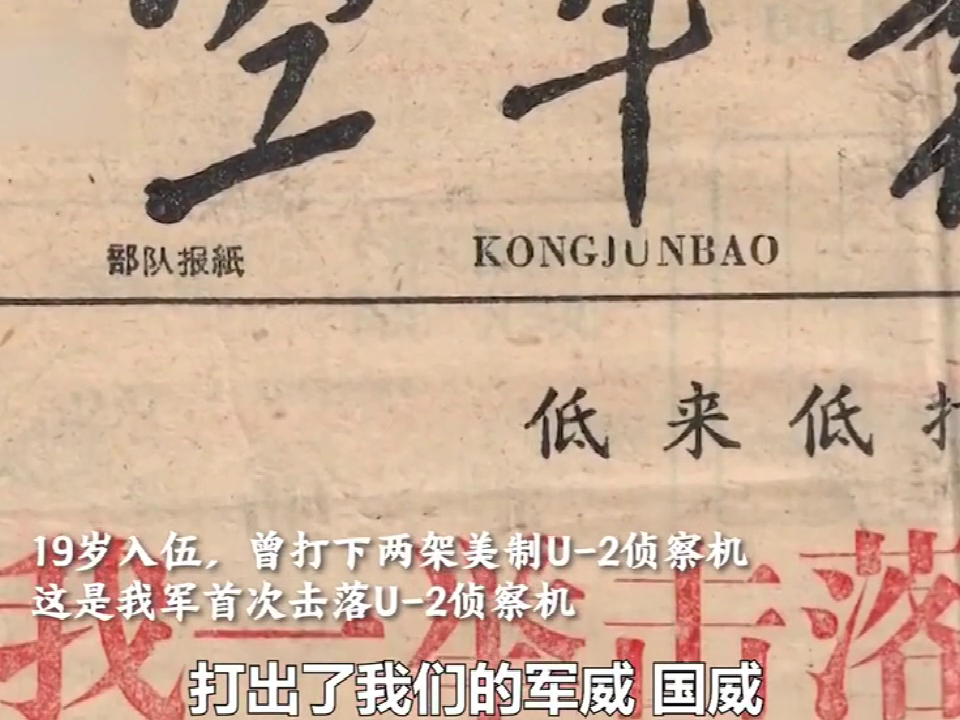 空军
部队报紙 KONGJUNBAO
低来低
19岁入伍，曾打下两架美制U-2侦察机
这是我军首次击落U-2侦察机
我一举击落
打出了我们的军威 国威